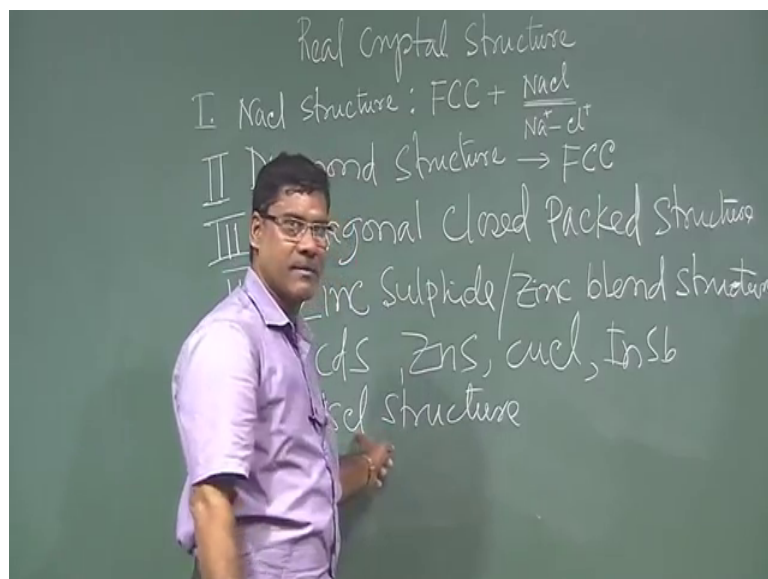 Real Cryptal Structure
I. Nacl structure : FCC + Nacl
Na⁺ - cl⁺
II Structure → FCC
III Closed Packed Structure
Sulphide/Zinc blend structure
cds, ZnS, cucl, InSb
structure